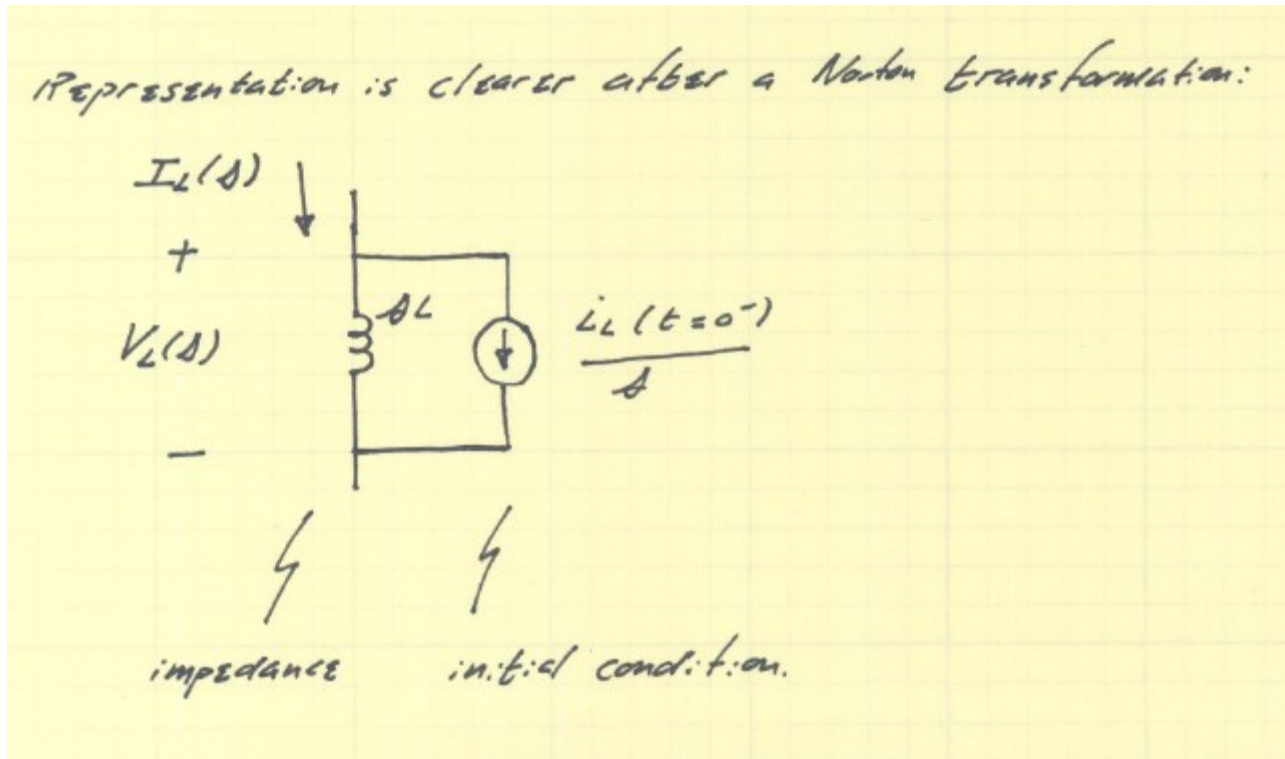 Representation is clearer after a Norton transformation:
I_L(s)
+
sL
i_L(t=0⁻)
V_L(s)
s
−
impedance initial condition.